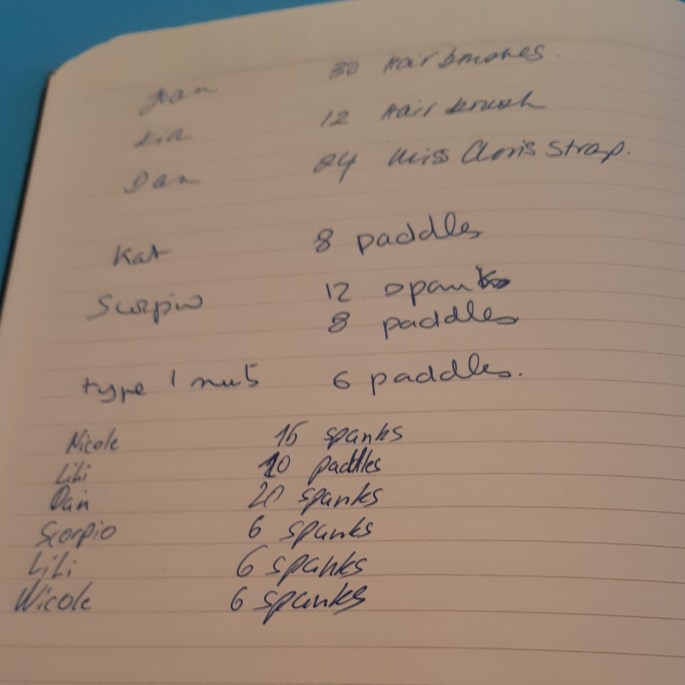 30 Hairbrushes.
12 Hairbrush
Dan 24 Miss Chris Strap.
Kat 8 paddles
Scorpio 12 spanks
8 paddles
type 1 nut 6 paddles.
Nicole 16 spanks
Lili 10 paddles
Dan 20 spanks
Scorpio 6 spanks
LiLi 6 spanks
Nicole 6 spanks